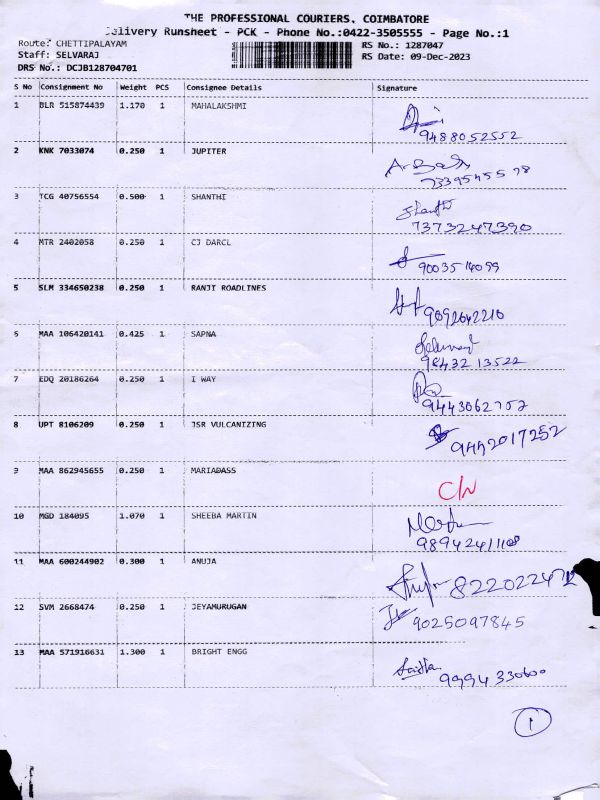 THE PROFESSIONAL COURIERS, COIMBATORE
Delivery Runsheet - PCK - Phone No.:0422-3505555 - Page No.:1
Route: CHETTIPALAYAM RS No.: 1287047
Staff: SELVARAJ RS Date: 09-Dec-2023
DRS No.: DCJB128704701
S No Consignment No Weight PCS Consignee Details Signature
1 BLR 515874439 1.170 1 MAHALAKSHMI
9488052552
2 KNK 7033074 0.250 1 JUPITER
3 TCG 40756554 0.500 1 SHANTHI
Shanthi
7373247390
4 MTR 2402058 0.250 1 CJ DARCL
9003514099
5 SLM 334650238 0.250 1 RANJI ROADLINES
9092642210
6 MAA 106420141 0.425 1 SAPNA
98432 13522
7 EDQ 20186264 0.250 1 I WAY
9443062752
8 UPT 8106209 0.250 1 JSR VULCANIZING
9442017252
9 MAA 862945655 0.250 1 MARIADASS
C/N
10 MGD 184095 1.070 1 SHEEBA MARTIN
9894241108
11 MAA 600244902 0.300 1 ANUJA
12 SVM 2668474 0.250 1 JEYAMURUGAN
9025097845
13 MAA 571916631 1.300 1 BRIGHT ENGG
9994330600
1